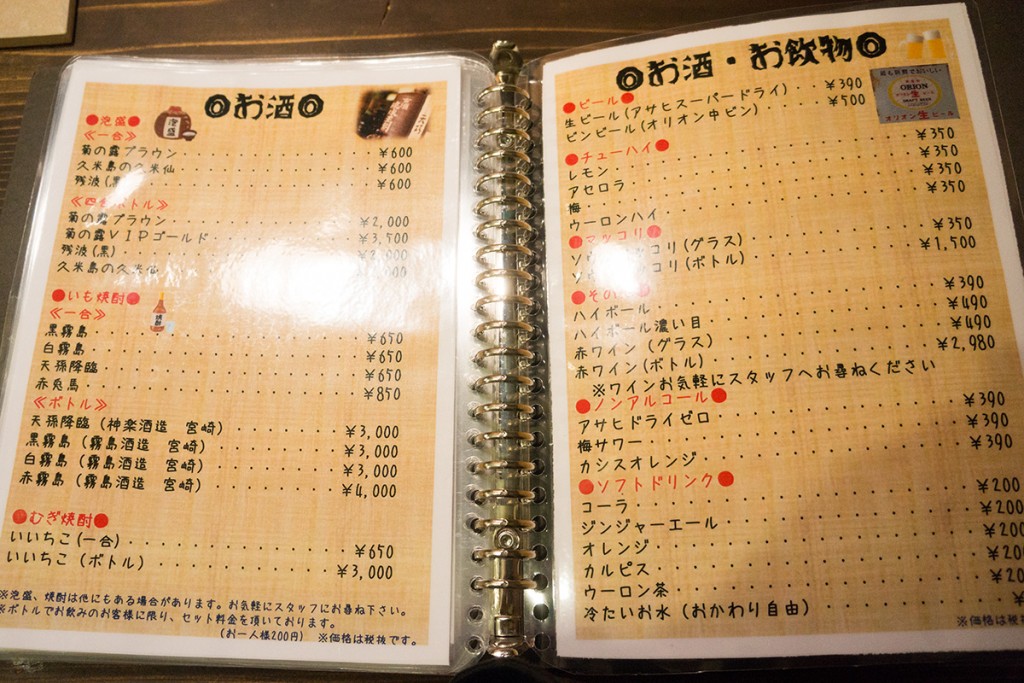 ◎お酒◎
●泡盛●
≪一合≫
泡盛
菊の露ブラウン ¥600
久米島の久米仙 ¥600
残波(黒) ¥600
≪四合ボトル≫
菊の露ブラウン ¥2,000
菊の露VIPゴールド ¥3,500
残波(黒)
久米島の久米仙
●いも焼酎●
≪一合≫
焼酎
黒霧島 ¥650
白霧島 ¥650
天孫降臨 ¥650
赤兎馬 ¥850
≪ボトル≫
天孫降臨(神楽酒造 宮崎) ¥3,000
黒霧島(霧島酒造 宮崎) ¥3,000
白霧島(霧島酒造 宮崎) ¥3,000
赤霧島(霧島酒造 宮崎) ¥4,000
●むぎ焼酎●
いいちこ(一合) ¥650
いいちこ(ボトル) ¥3,000
※泡盛、焼酎は他にもある場合があります。お気軽にスタッフにお尋ね下さい。
※ボトルでお飲みのお客様に限り、セット料金を頂いております。
(お一人様200円) ※価格は税抜です。
◎お酒・お飲物◎
●ビール●
生ビール(アサヒスーパードライ) ¥390
ビンビール(オリオン中ビン) ¥500
ORION
生
DRAFT BEER
オリオン生ビール
●チューハイ●
レモン ¥350
アセロラ ¥350
梅 ¥350
ウーロンハイ ¥350
●マッコリ●
マッコリ(グラス) ¥350
コリ(ボトル) ¥1,500
ハイボール ¥390
ハイボール濃い目 ¥490
赤ワイン(グラス) ¥490
赤ワイン(ボトル) ¥2,980
※ワインお気軽にスタッフへお尋ねください
●ノンアルコール●
アサヒドライゼロ ¥390
梅サワー ¥390
カシスオレンジ ¥390
●ソフトドリンク●
コーラ ¥200
ジンジャーエール ¥200
オレンジ ¥200
カルピス
ウーロン茶
冷たいお水(おかわり自由)
※価格は税抜